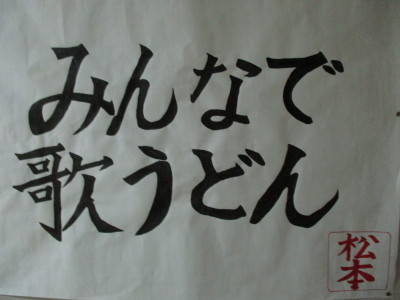 みんなで
歌うどん
松本